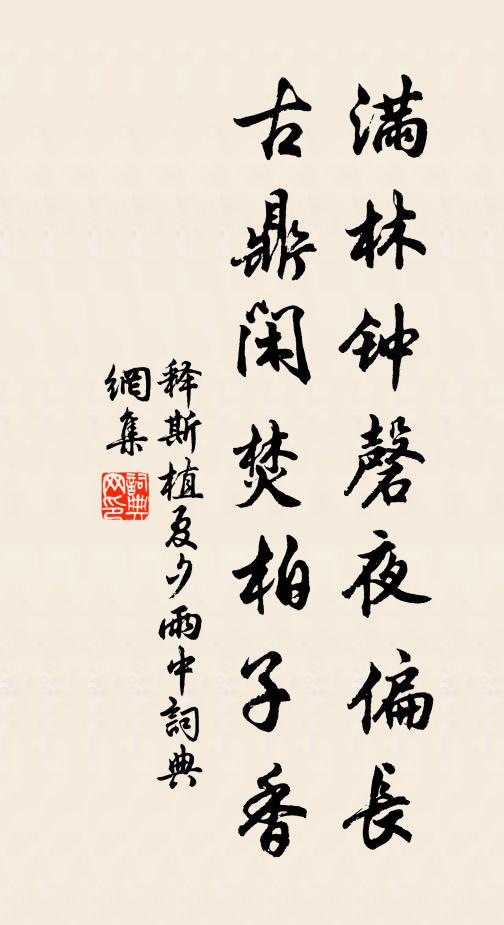 满林钟磬夜偏長
古鼎闲焚柏子香
释斯植夏夕雨中詞典
網集
詞典
网印